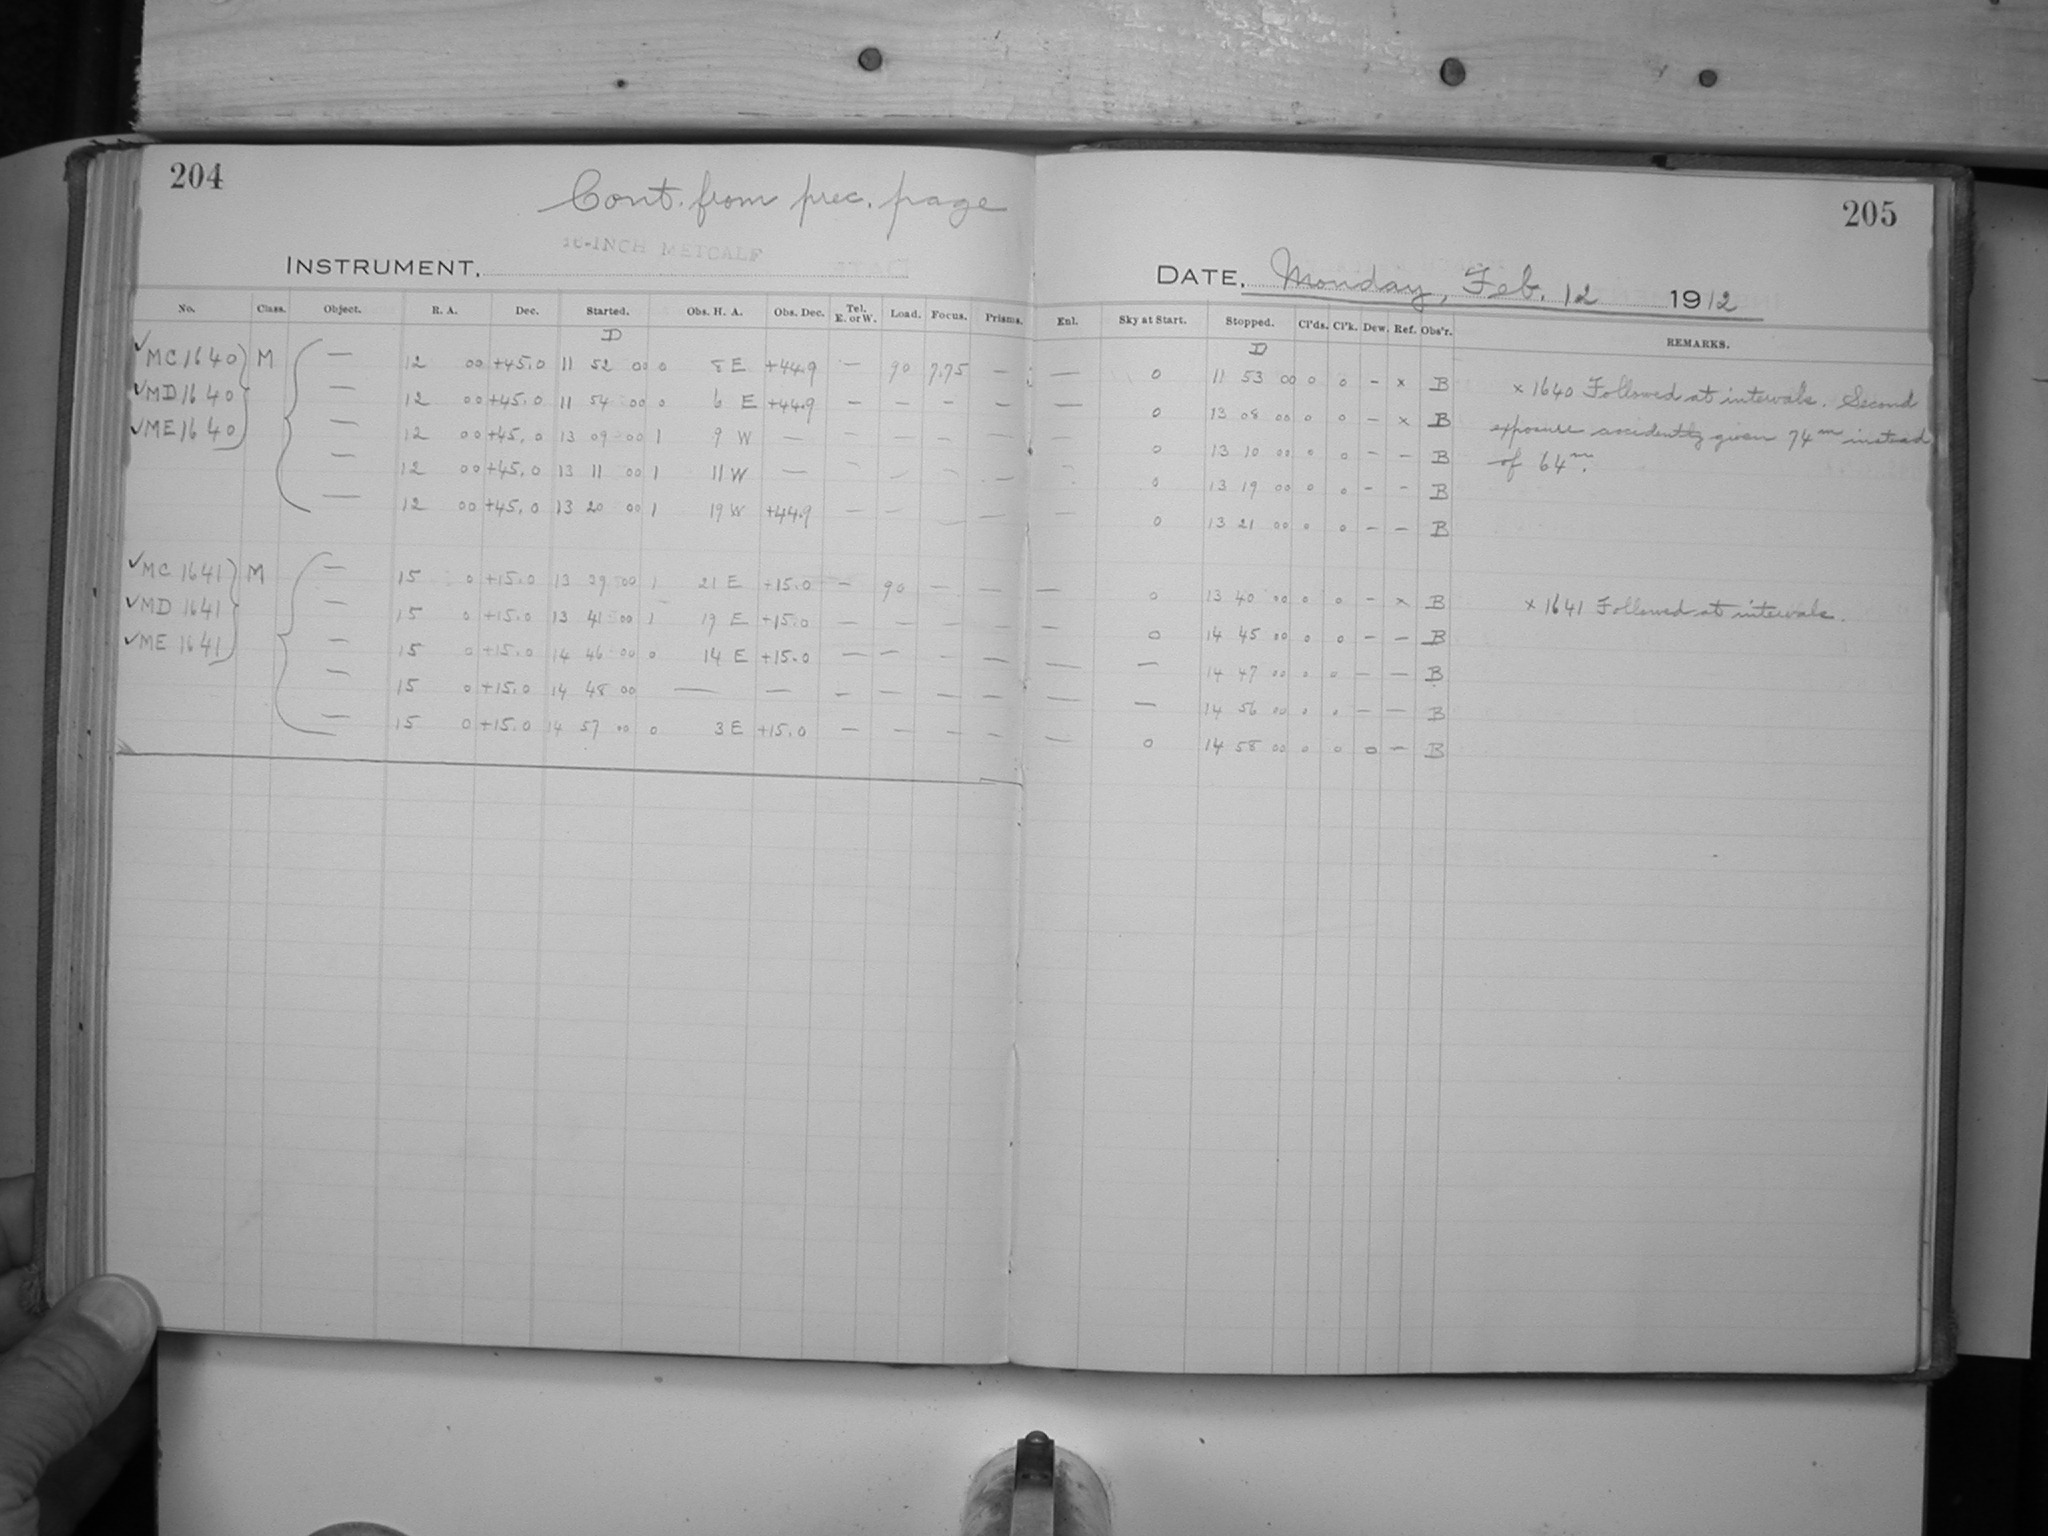 204
Cont. from prec. page
16-INCH METCALF
INSTRUMENT.
No. Class. Object. R. A. Dec. Started. Obs. H. A. Obs. Dec. Tel. E. or W. Load. Focus. Prisms.
D
✓MC1640 M — 12 00 +45.0 11 52 00 0 8 E +44.9 — 90 7.75 —
✓MD1640 — 12 00 +45.0 11 54 00 0 6 E +44.9 — — — —
✓ME1640 — 12 00 +45.0 13 09 00 1 9 W — — — — —
— 12 00 +45.0 13 11 00 1 11 W — — — — —
— 12 00 +45.0 13 20 00 1 19 W +44.9 — — — —
✓MC 1641 M — 15 0 +15.0 13 39 00 1 21 E +15.0 — 90 — —
✓MD 1641 — 15 0 +15.0 13 41 00 1 19 E +15.0 — — — —
✓ME 1641 — 15 0 +15.0 14 46 00 0 14 E +15.0 — — — —
— 15 0 +15.0 14 48 00 — — — — — —
— 15 0 +15.0 14 57 00 0 3 E +15.0 — — — —
205
DATE. Monday, Feb. 12 1912
Enl. Sky at Start. Stopped. Cl'ds. Cl'k. Dew. Ref. Obs'r. REMARKS.
D
— 0 11 53 00 0 0 – x B x 1640 Followed at intervals. Second
— 0 13 08 00 0 0 – x B exposure accidently given 74m instead
— 0 13 10 00 0 0 – – B of 64m.
— 0 13 19 00 0 0 – – B
0 13 21 00 0 0 – – B
— 0 13 40 00 0 0 – x B x 1641 Followed at intervals.
— 0 14 45 00 0 0 – – B
— — 14 47 00 0 0 – – B
— — 14 56 00 0 0 – – B
— 0 14 58 00 0 0 0 – B